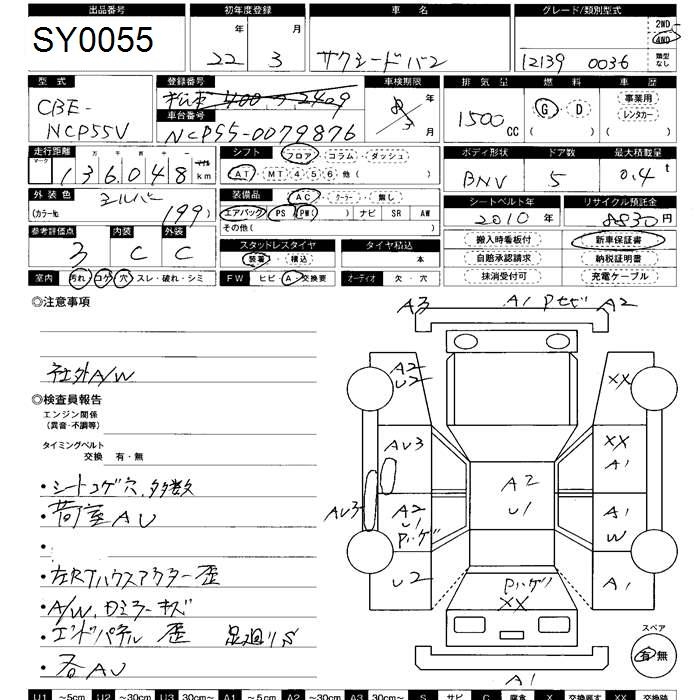 出品番号 初年度登録 車名 グレード/類別型式
SY0055 22年 3月 サクシードバン 12139 0036 2WD 4WD 類型なし
型式 登録番号 車検期限 排気量 燃料 車歴
CBE-
NCP55V
400 2409
車台番号
NCP55-0079876
R 年 3 月
1500 CC G・D ( )
事業用
レンタカー
( )
走行距離 シフト フロア・コラム・ダッシュ
マーク 十万千百十 136,048 km
AT・MT(4 5 6 他( )
ボディ形状 ドア数 最大積載量
BNV 5 0.4t
外装色 シルバー
(カラーNo. 199)
装備品 AC・クーラー・無し
エアバック PS PW( ) ナビ SR AW
その他( )
シートベルト年 リサイクル預託金
2010年 8830円
参考評価点 内装 外装
3 C C
スタッドレスタイヤ タイヤ積込
装着・積込 本
搬入時看板付 新車保証書
自賠承認請求 納税証明書
抹消受付可 充電ケーブル
室内 汚れ・コゲ・穴・スレ・破れ・シミ FW ヒビ・A・交換要 オーディオ 欠・穴
◎注意事項
社外A/W
◎検査員報告
エンジン関係
(異音・不調等)
タイミングベルト
交換 有・無
・シートコゲ穴、多数
・荷室AU
・
・左Rタハウスアウター歪
・A/W、Dミラーキズ
・エンドパネル歪 足廻りS
・各AU
A3 A1 Pセビ A2
A2
U2
XX
AU3
XX
A1
AU3
A2
U1
Pハゲ
A2
U1
A1
W
U2
Pハゲ
XX
A1
A1
スペア
有・無
U1 ~5cm U2 ~30cm U3 30cm~ A1 ~5cm A2 ~30cm A3 30cm~ S サビ C 腐食 X 交換要す XX 交換跡